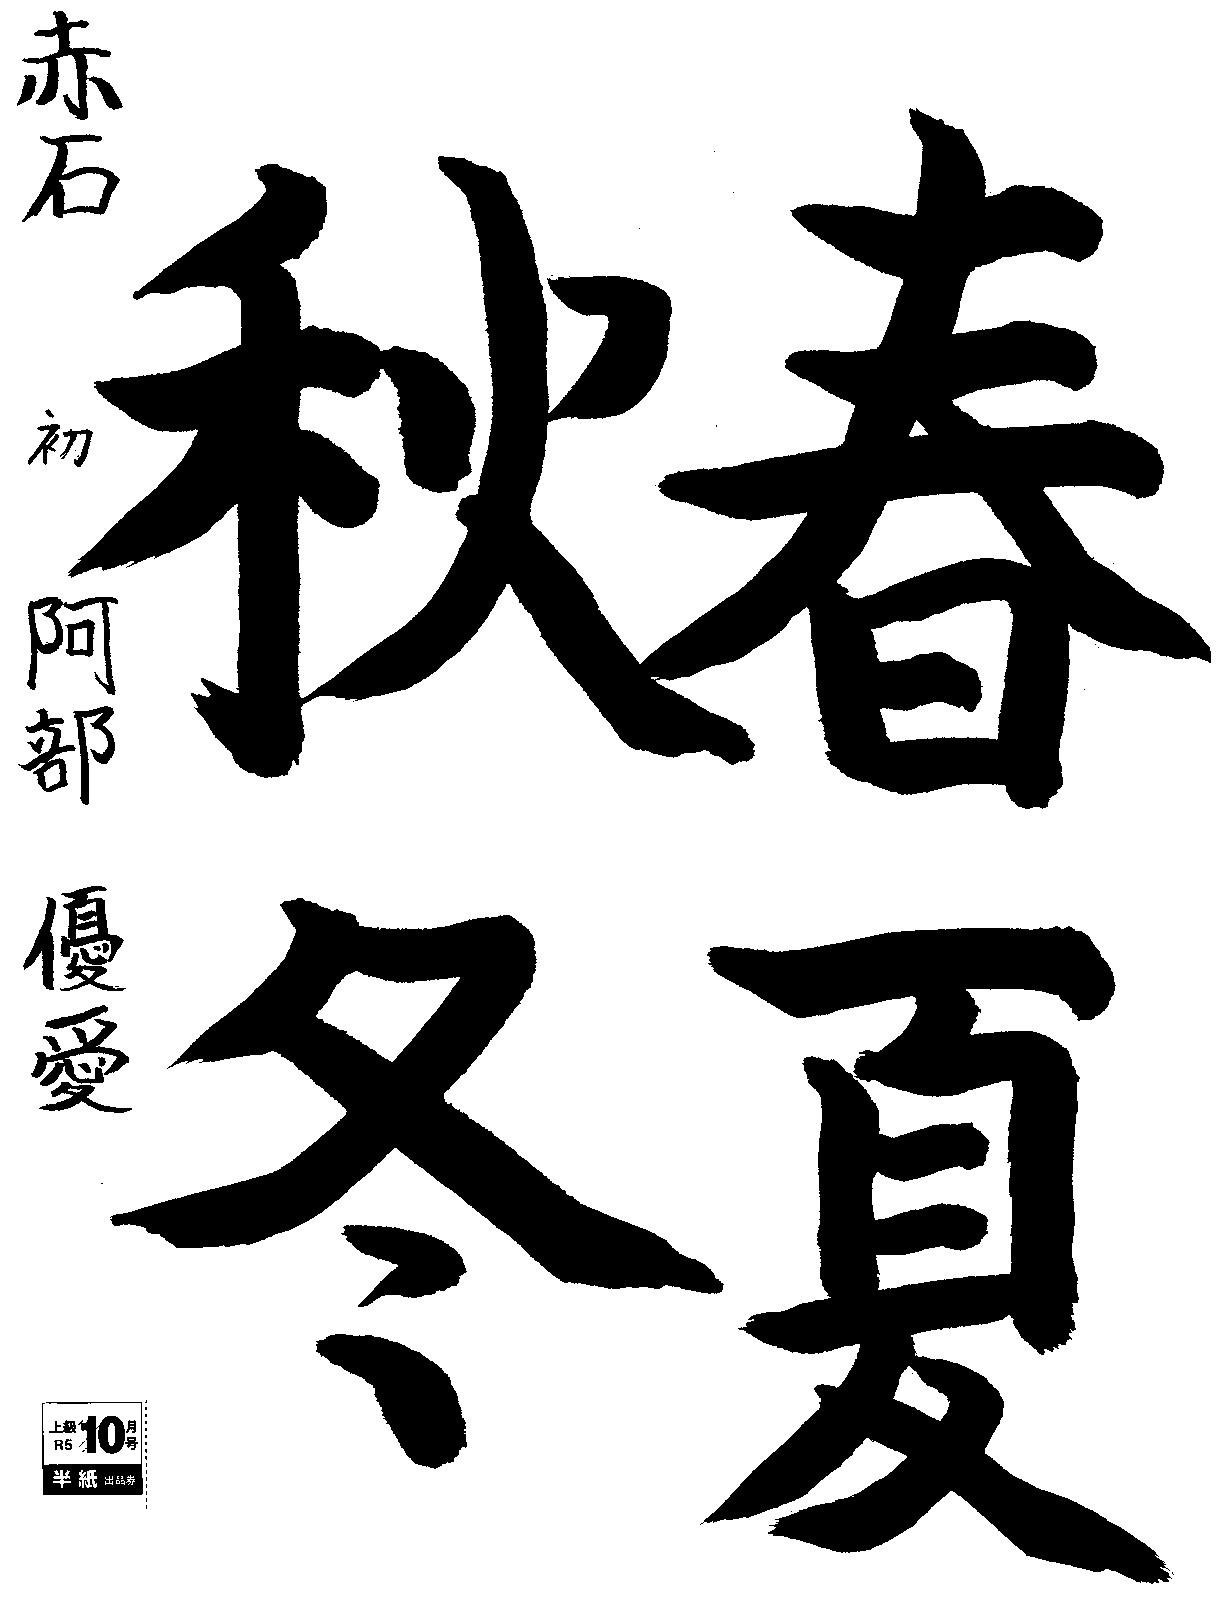 春夏
秋冬
赤石 初 阿部 優愛
上級 10月号
R5
半紙 出品券